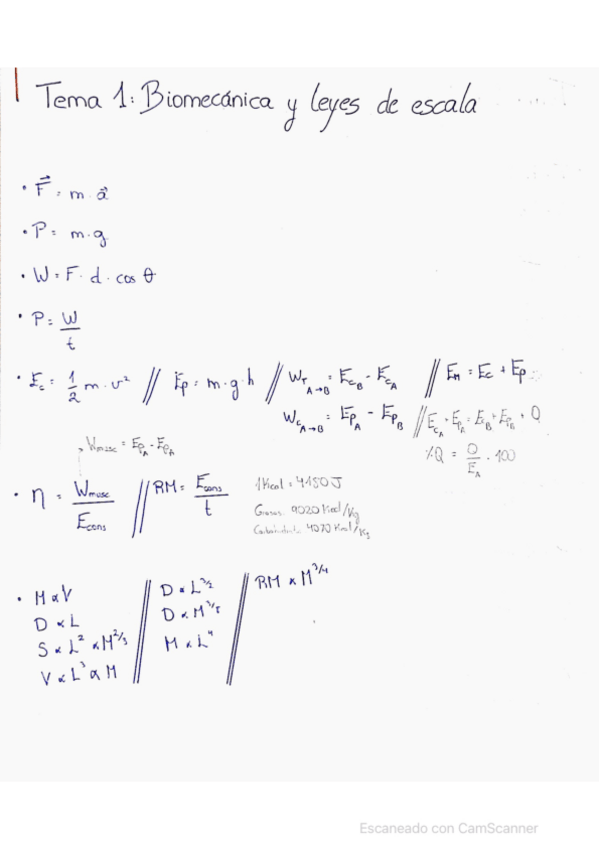 Tema 1: Biomecánica y leyes de escala
• F⃗ = m · a⃗
• P = m·g
• W = F · d · cos θ
• P = W/t
• Ec = 1/2 m · v² // Ep = m·g·h // W_T A→B = E_cB - E_cA // Em = Ec + Ep
W_c A→B = E_pA - E_pB // E_cA + E_pA = E_cB + E_pB + Q
W musc = E_pA - E_pA
% Q = Q/E_A · 100
• η = W musc / E cons // RM = E cons / t
1 Kcal = 4180 J
Grasas: 9020 Kcal/Kg
4070 Kcal/Kg
• M ∝ V // D ∝ L^3/2 // RM ∝ M^3/4
D ∝ L // D ∝ M^3/8
S ∝ L² ∝ M^2/3 // M ∝ L⁴
V ∝ L³ ∝ M
Escaneado con CamScanner